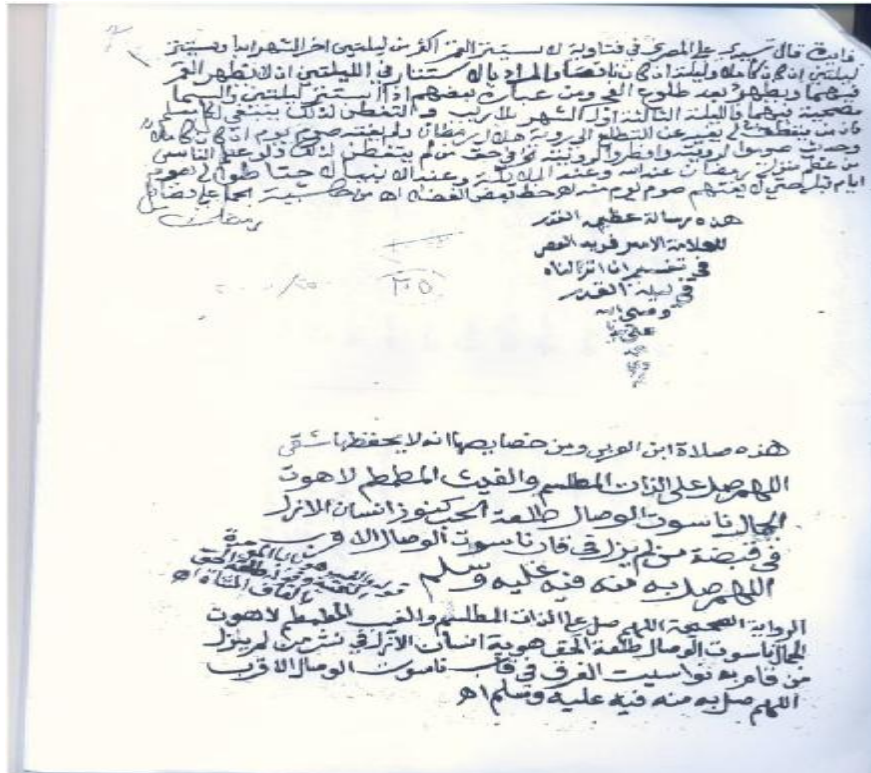 فايدة قال سيدي علي المصري في فتاويه لا يستتر القمر اكثر من ليلتين اخر الشهر ابدا ويستتر
ليلتين ان كان كاملا وليلة ان كان ناقصا والمراد بالاستتار في الليلتين ان لا يظهر القمر
فيهما ويظهر بعد طلوع الفجر ومن عبارة بعضهم اذا استتر ليلتين والسما
مصحية فيهما فالليلة الثالثة اول الشهر بلا ريب والتفطن لذلك ينبغي لكل مسلم
فان من يتفطن له يغنيه عن التطلع الى روية هلال رمضان ولم يفته صوم يوم ان كان كاملا
وحديث صوموا لرويته وافطروا لرويته في حق من لم يتفطن لذلك ولو علم الناس
من عظم منزلة رمضان عند الله وعند الملائكة وعند الانبيا لاحتاطوا له بصوم
ايام قبله حتى لا يفتهم صوم يوم منه اهـ خط بعض الفضلا اهـ من حاشية علي فضائل
رمضان
هذه رسالة عظيمة القدر
للعلامة الامير فريد العصر
في تفسير انا انزلناه
في ليلة القدر
وصلى الله
على
٢٠٥
هذه صلاة ابن العربي ومن خصايصها انه لا يحفظها شقي
اللهم صل على الذات المطلسم والغيب المطمطم لاهوت
الجمال ناسوت الوصال طلعة الحق كنوز انسان الازل
في قبضة من لم يزل في قاب ناسوت الوصال الاقرب
اللهم صل به منه فيه عليه وسلم
الرواية الصحيحة اللهم صل على الذات المطلسم والغيب المطمطم لاهوت
الجمال ناسوت الوصال طلعة الحق هوية انسان الازل في نشر من لم يزل
من قام به نواسيت الفرق في قاب ناسوت الوصال الاقرب
اللهم صل به منه فيه عليه وسلم اهـ